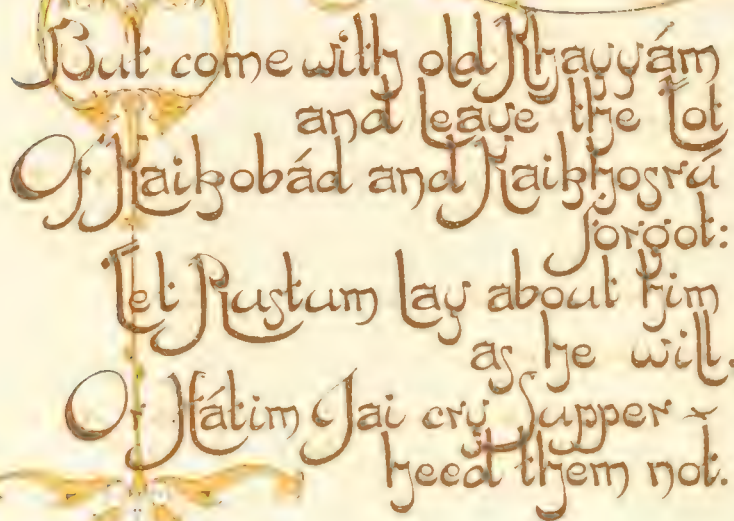 But come with old Khayyám
and leave the Lot
Of Kaikobád and Kaikhosrú
forgot:
Let Rustum lay about him
as he will,
Or Hátim Tai cry Supper ~
heed them not.